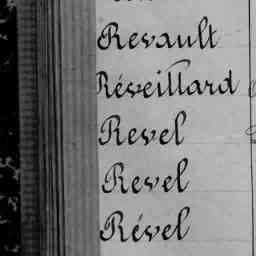 Revault
Réveillard
Revel
Revel
Révél